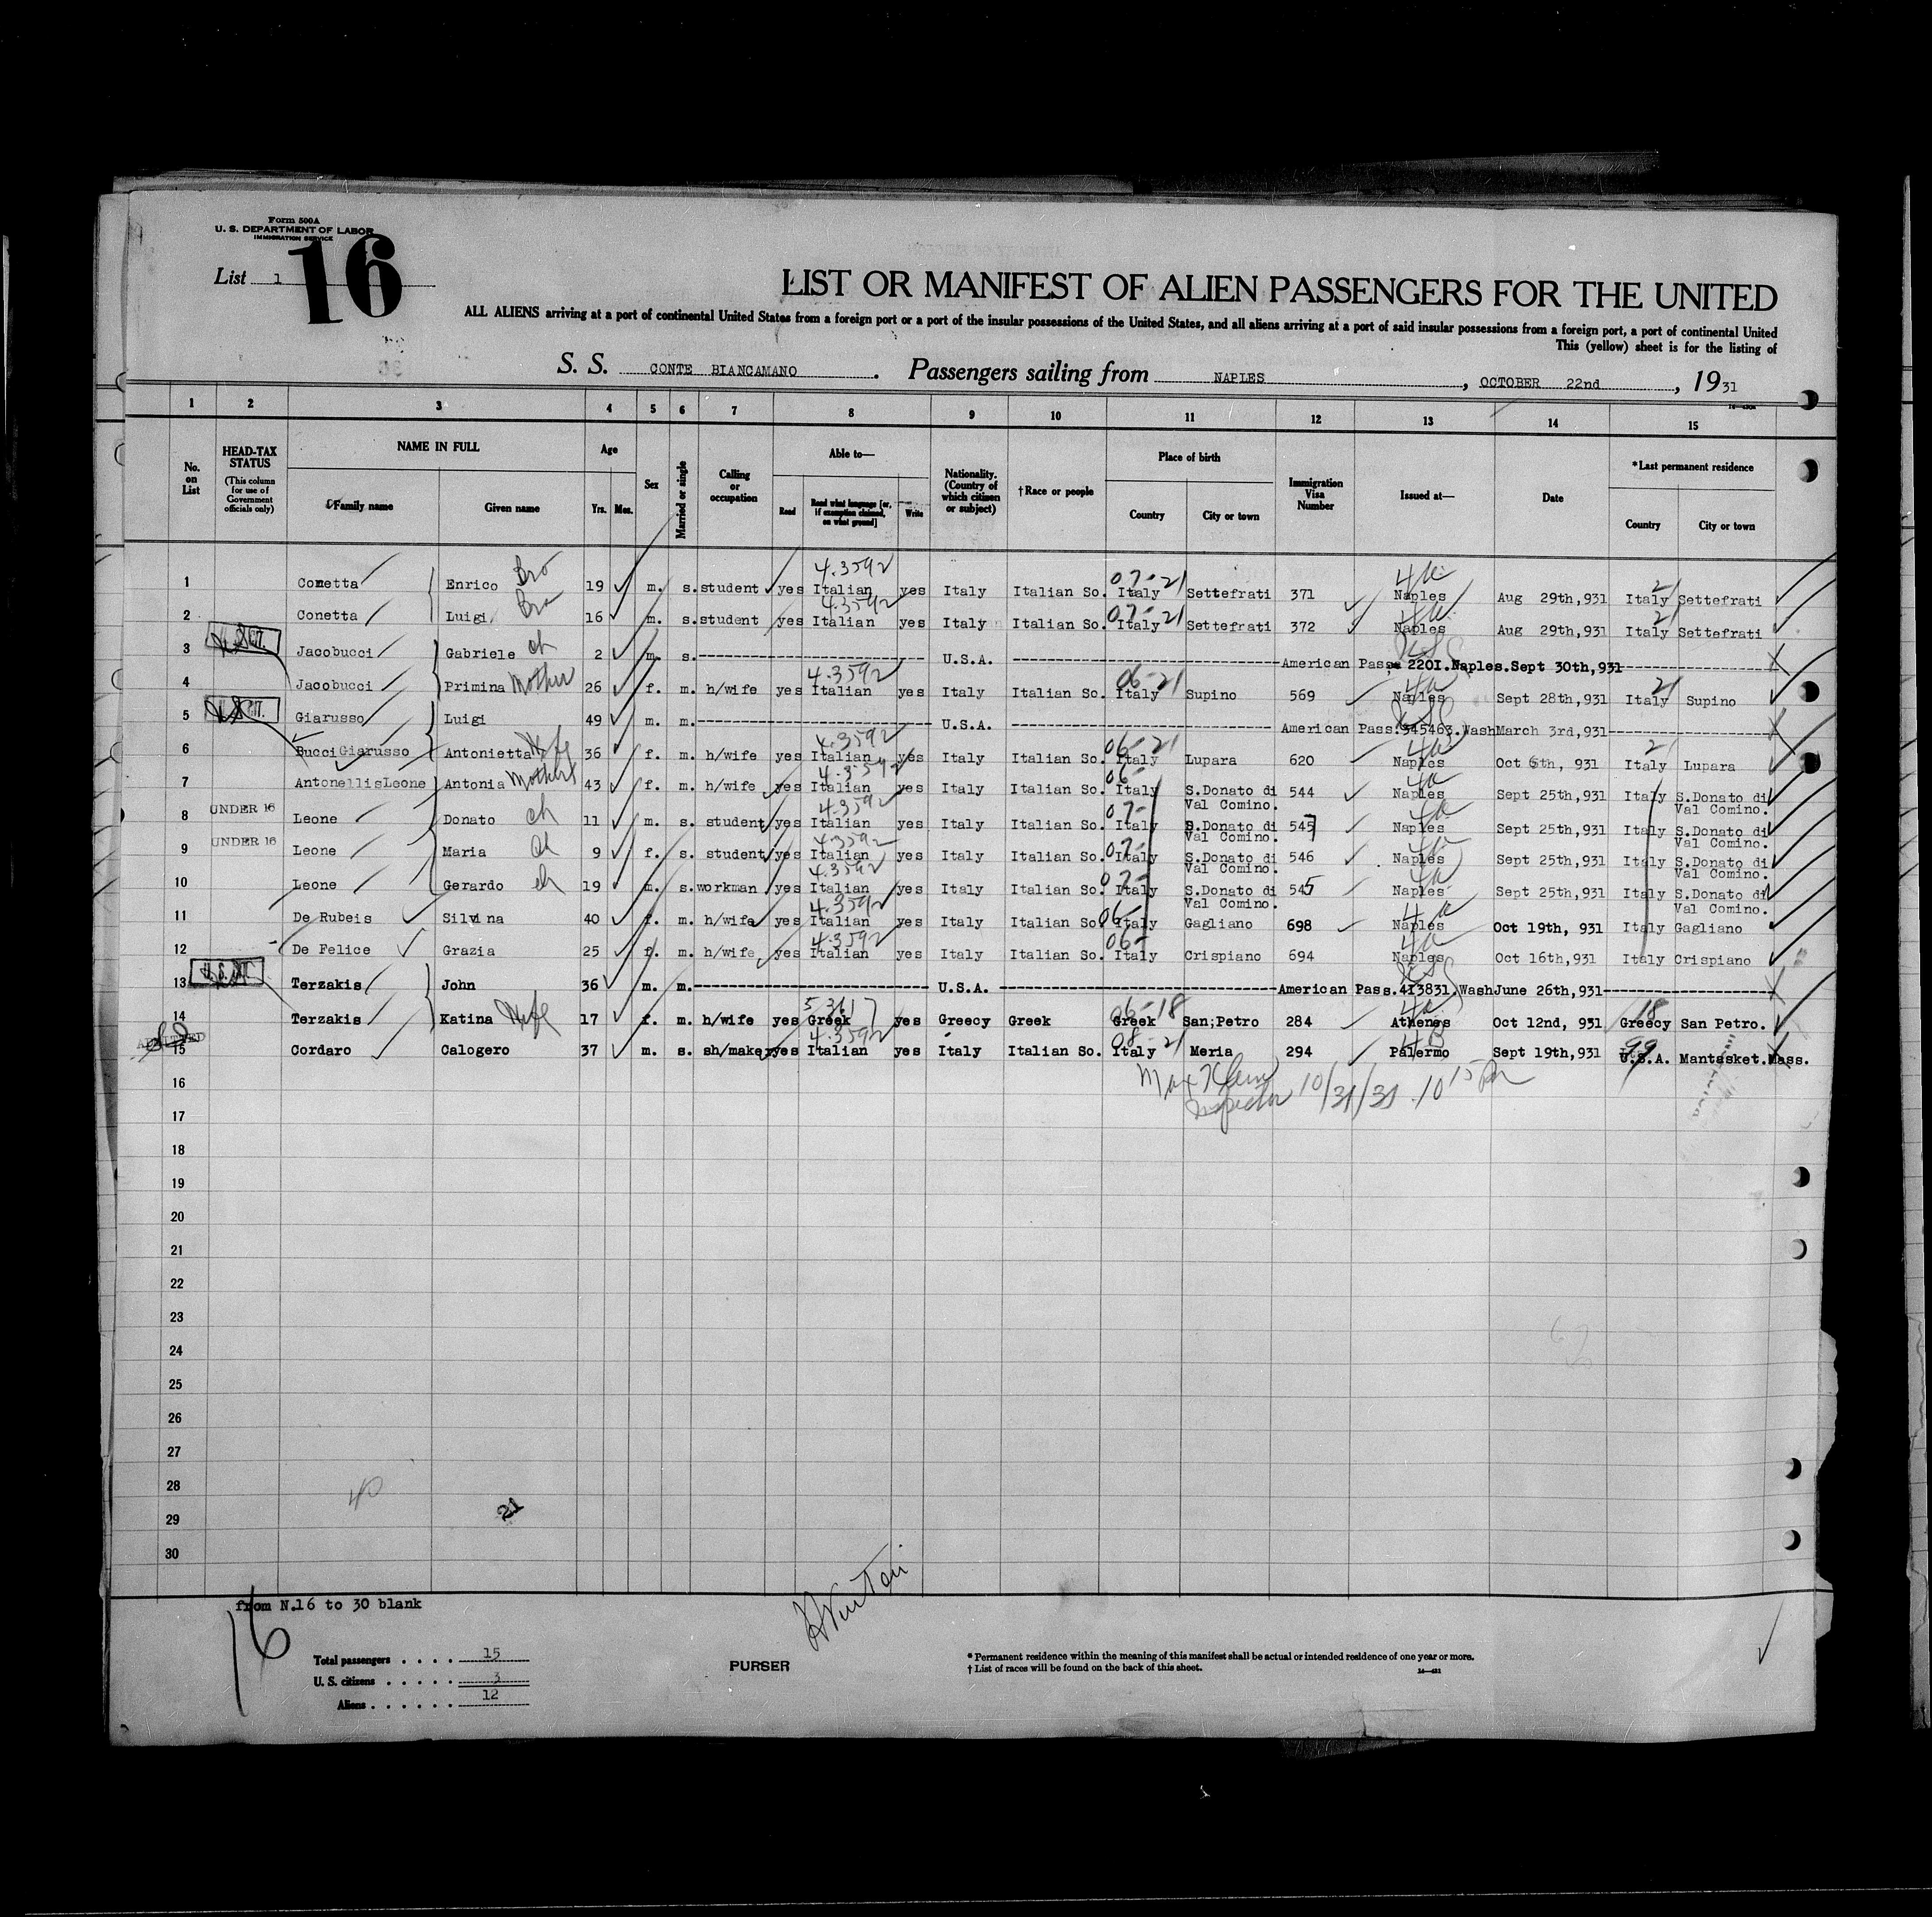 Form 500A
U. S. DEPARTMENT OF LABOR
IMMIGRATION SERVICE
List 1
16
LIST OR MANIFEST OF ALIEN PASSENGERS FOR THE UNITED
ALL ALIENS arriving at a port of continental United States from a foreign port or a port of the insular possessions of the United States, and all aliens arriving at a port of said insular possessions from a foreign port, a port of continental United
This (yellow) sheet is for the listing of
S. S. CONTE BIANCAMANO . Passengers sailing from NAPLES , OCTOBER 22nd , 1931
1 2 3 4 5 6 7 8 9 10 11 12 13 14 15
No. on List
HEAD-TAX STATUS (This column for use of Government officials only)
NAME IN FULL
Family name Given name
Age
Yrs. Mos.
Sex
Married or single
Calling or occupation
Able to—
Read Read what language [or, if exemption claimed, on what ground] Write
Nationality. (Country of which citizen or subject)
†Race or people
Place of birth
Country City or town
Immigration Visa Number
Issued at—
Date
*Last permanent residence
Country City or town
1 Conetta Enrico Bro 19 m. s. student yes Italian 4.3592 yes Italy Italian So. 07-21 Italy Settefrati 371 Naples Aug 29th,931 21 Italy Settefrati
2 Conetta Luigi Bro 16 m. s. student yes Italian 4.3592 yes Italy Italian So. 07-21 Italy Settefrati 372 Naples Aug 29th,931 21 Italy Settefrati
3 Jacobucci Gabriele ch 2 m. s. U.S.A. American Pass. 2201.Naples.Sept 30th,931
4 Jacobucci Primina Mother 26 f. m. h/wife yes Italian 4.3592 yes Italy Italian So. 06-21 Italy Supino 569 Naples Sept 28th,931 21 Italy Supino
5 Giarusso Luigi 49 m. m. U.S.A. American Pass.345463.Wash March 3rd,931
6 Bucci Giarusso Antonietta Wife 36 f. m. h/wife yes Italian 4.3592 yes Italy Italian So. 06-21 Italy Lupara 620 Naples Oct 6th, 931 21 Italy Lupara
7 Antonellis Leone Antonia Mother 43 f. m. h/wife yes Italian 4.3592 yes Italy Italian So. 06- Italy S.Donato di Val Comino. 544 Naples Sept 25th,931 Italy S.Donato di Val Comino.
8 UNDER 16 Leone Donato ch 11 m. s. student yes Italian 4.3592 yes Italy Italian So. 07- Italy S.Donato di Val Comino. 547 Naples Sept 25th,931 Italy S.Donato di Val Comino.
9 UNDER 16 Leone Maria ch 9 f. s. student yes Italian 4.3592 yes Italy Italian So. 07- Italy S.Donato di Val Comino. 546 Naples Sept 25th,931 Italy S.Donato di Val Comino.
10 Leone Gerardo ch 19 m. s. workman yes Italian 4.3592 yes Italy Italian So. 07- Italy S.Donato di Val Comino. 545 Naples Sept 25th,931 Italy S.Donato di Val Comino.
11 De Rubeis Silvina 40 f. m. h/wife yes Italian 4.3592 yes Italy Italian So. 06- Italy Gagliano 698 Naples Oct 19th, 931 Italy Gagliano
12 De Felice Grazia 25 f. m. h/wife yes Italian 4.3592 yes Italy Italian So. 06- Italy Crispiano 694 Naples Oct 16th,931 Italy Crispiano
13 Terzakis John 36 m. m. U.S.A. American Pass.413831.Wash June 26th,931
14 Terzakis Katina Wife 17 f. m. h/wife yes Greek yes Greecy Greek 06-18 Greek San;Petro 284 Athenes Oct 12nd, 931 18 Greecy San Petro.
15 Cordaro Calogero 37 m. s. sh/maker yes Italian 4.3592 yes Italy Italian So. 08-21 Italy Meria 294 Palermo Sept 19th,931 99 U.S.A. Mantasket.Mass.
16 Inspector 10/31/31
17
18
19
20
21
22
23
24
25
26
27
28 40
29 21
30
from N.16 to 30 blank
16
Total passengers . . . . 15
U. S. citizens . . . . . 3
Aliens . . . . . . 12
PURSER
* Permanent residence within the meaning of this manifest shall be actual or intended residence of one year or more.
† List of races will be found on the back of this sheet.